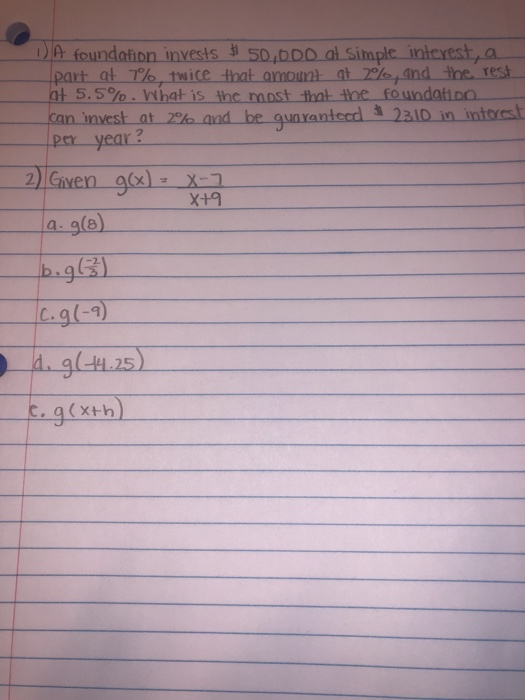 1) A foundation invests $ 50,000 at simple interest, a
part at 7%, twice that amount at 2%, and the rest
at 5.5%. What is the most that the foundation
can invest at 2% and be guaranteed $ 2310 in interest
per year?
2) Given g(x) = x-7
x+9
a. g(8)
b. g(-2/3)
c. g(-9)
d. g(-14.25)
e. g(x+h)